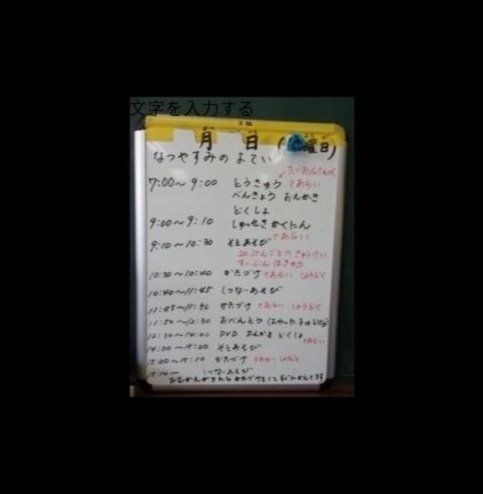 文字を入力する
月 日 (曜日)
なつやすみの よてい
7:00〜9:00 とうきゅう てあらい
べんきょう おえかき
どくしょ
9:00〜9:10 しゅっせきかくにん
9:10〜10:30 そとあそび てあらい
20ぷんごとの きゅうけい
すいぶんほきゅう
10:30〜10:40 かたづけ てあらい しょうどく
10:40〜11:45 しつなーあそび
11:45〜11:50 かたづけ てあらい しょうどく
11:50〜12:30 おべんとう
12:30〜14:00 DVD おんがく どくしょ
14:00〜15:00 そとあそび
15:00〜15:10 かたづけ
しつなーあそび